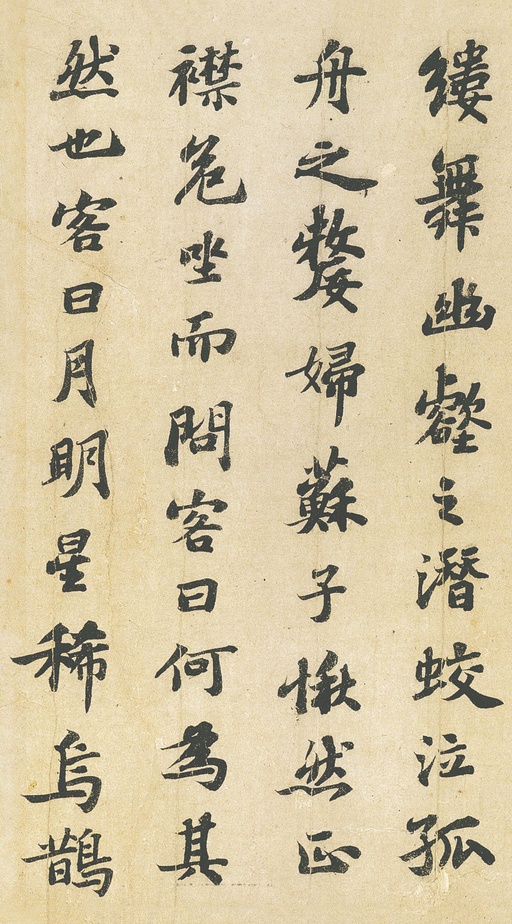 縷舞幽壑之潛蛟泣孤
舟之嫠婦蘇子愀然正
襟危坐而問客曰何為其
然也客曰月明星稀烏鵲